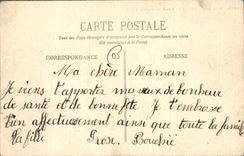 CARTE POSTALE
Tous les Pays étrangers n'acceptent pas la Correspondance au recto
(Se renseigner à la Poste)
CORRESPONDANCE ADRESSE
03
Ma chère Maman
Je viens t'apporter mes vœux de bonheur
de santé et de bonne fête Je t'embrasse
bien affectueusement ainsi que toute la famille
Ta fille Rose Bouchié